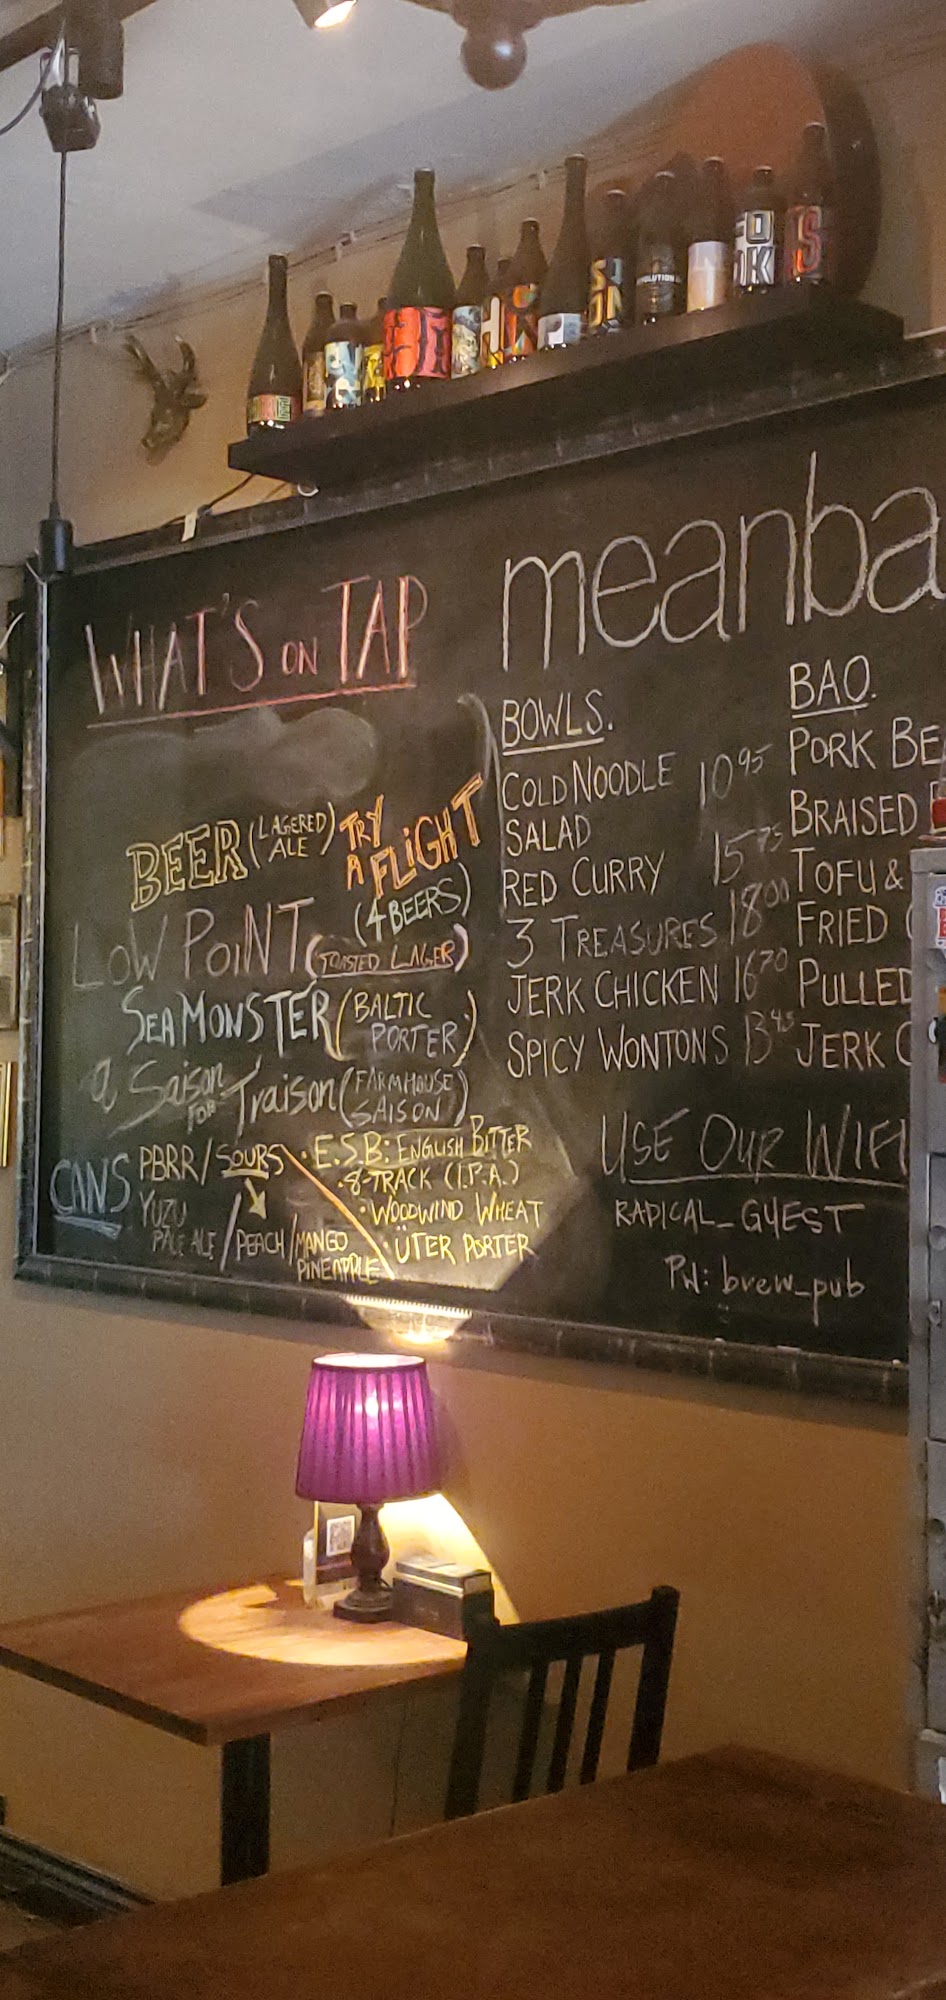 WHAT'S ON TAP
BEER (LAGERED ALE)
TRY A FLIGHT
(4 BEERS)
LOW POINT (TOASTED LAGER)
SEA MONSTER (BALTIC PORTER)
a Saison FOR Traison (FARMHOUSE SAISON)
CANS
PBRR / SOURS
YUZU
PALE ALE / PEACH / MANGO
PINEAPPLE
• E.S.B: ENGLISH BITTER
• 8-TRACK (I.P.A.)
• WOODWIND WHEAT
• ÜTER PORTER
meanba
BOWLS.
COLD NOODLE SALAD 10 95
RED CURRY 15 75
3 TREASURES 18 00
JERK CHICKEN 16 70
SPICY WONTONS 13 45
BAO.
PORK BE
BRAISED
TOFU &
FRIED
PULLED
JERK C
USE OUR WIFI
RADICAL_GUEST
PW: brew_pub